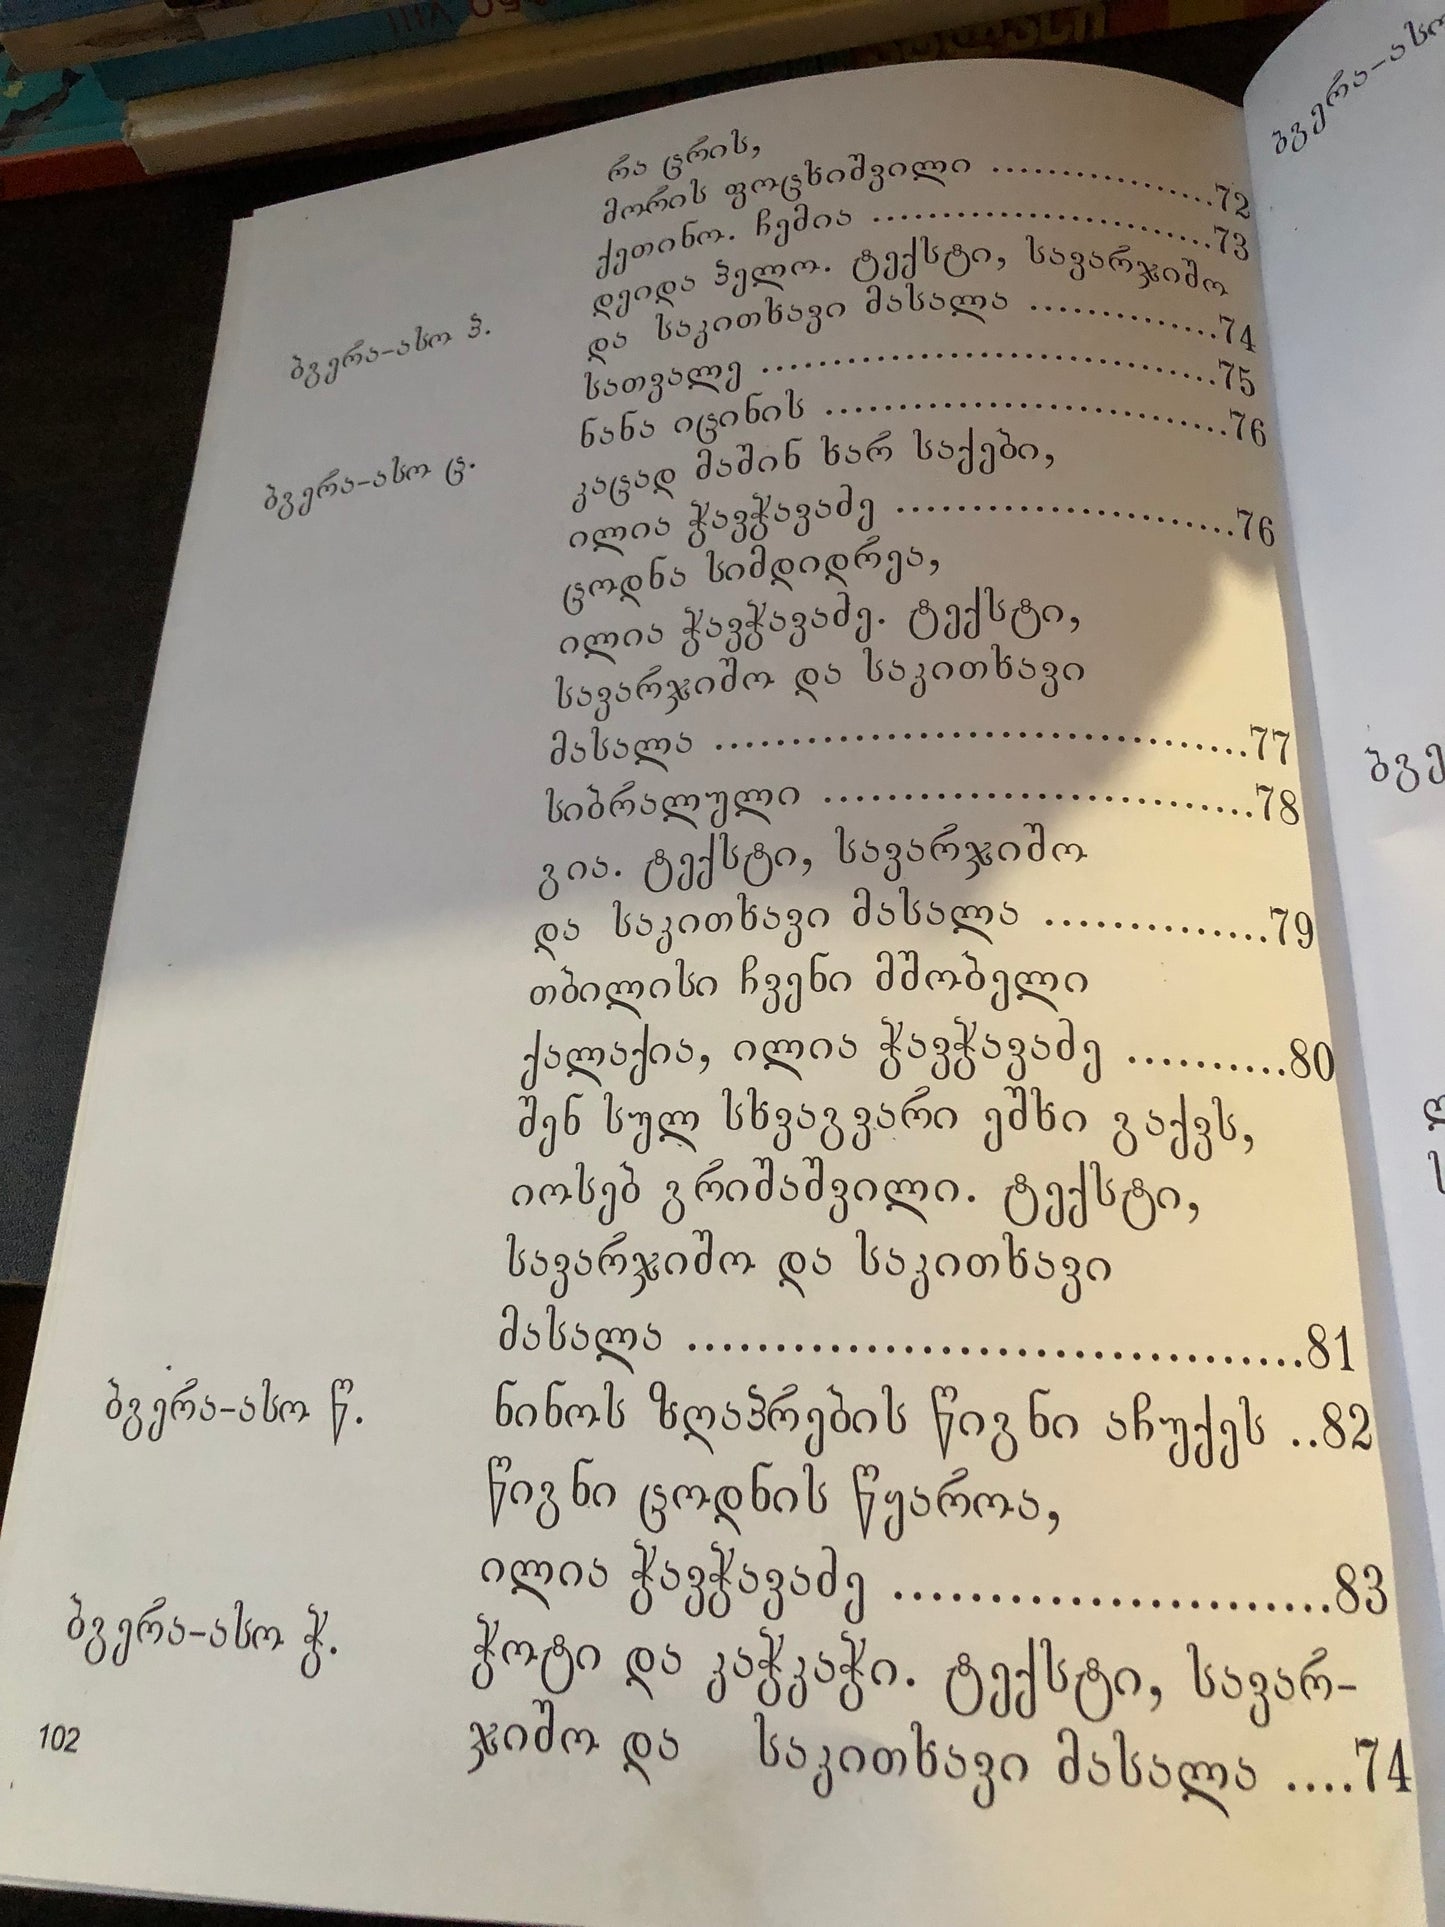 რა ცრის,
მორის ფოცხიშვილი ..................72
ქეთინო. ჩემია ..............................73
ბგერა-ასო ჰ. დეიდა ჰელო. ტექსტი, სავარჯიშო
და საკითხავი მასალა ................74
სათვალე ........................................75
ბგერა-ასო ც. ნანა იცინის ..................................76
კაცად მაშინ ხარ საქები,
ილია ჭავჭავაძე .............................76
ცოდნა სიმდიდრეა,
ილია ჭავჭავაძე. ტექსტი,
სავარჯიშო და საკითხავი
მასალა ...........................................77
სიბრალული ...................................78
გია. ტექსტი, სავარჯიშო
და საკითხავი მასალა .................79
თბილისი ჩვენი მშობელი
ქალაქია, ილია ჭავჭავაძე ..........80
შენ სულ სხვაგვარი ეშხი გაქვს,
იოსებ გრიშაშვილი. ტექსტი,
სავარჯიშო და საკითხავი
მასალა ...........................................81
ბგერა-ასო წ. ნინოს ზღაპრების წიგნი აჩუქეს ..82
წიგნი ცოდნის წყაროა,
ილია ჭავჭავაძე ...........................83
ბგერა-ასო ჭ. ჭოტი და კაჭკაჭი. ტექსტი, სავარ-
ჯიშო და საკითხავი მასალა ....74
102